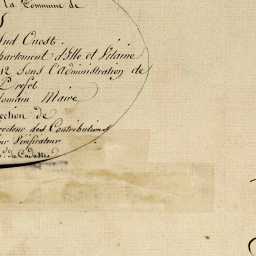 la Commune de
Sud Ouest.
partement d'Ille et Vilaine
12 sous l'administration de
Préfet
Maire
ection de
recteur des Contributions
Vérificateur
du Cadastre